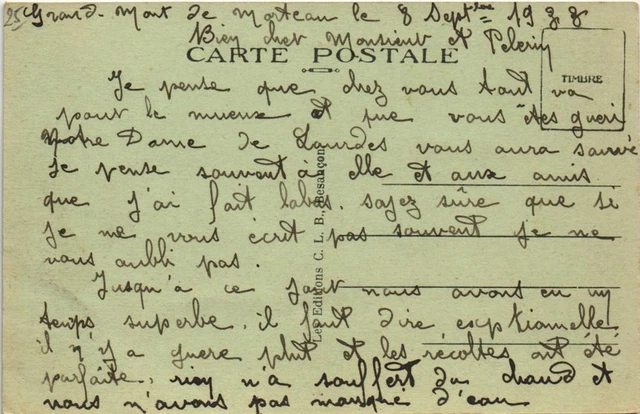 25 Grand-Mont de Morteau le 8 Septbre 1938
Bien cher Monsieur et Pelerin
CARTE POSTALE
TIMBRE
Je pense que chez vous tout va
pour le mueux et que vous êtes gueri
Notre Dame de Lourdes vous aura sauvé
Je pense souvent à elle et aux amis
que j'ai fait labas. sayez sûre que si
je ne vous écrit pas souvent je ne
vous oubli pas.
Jusqu'à ce jour nous avons eu un
temps superbe. il faut dire exeptionnelle
il n'y a guere plut et les récoltes ont été
parfaite, rien n'a souffert du chaud et
nous n'avons pas manque d'eau
Les Editions C. L. B., Besançon